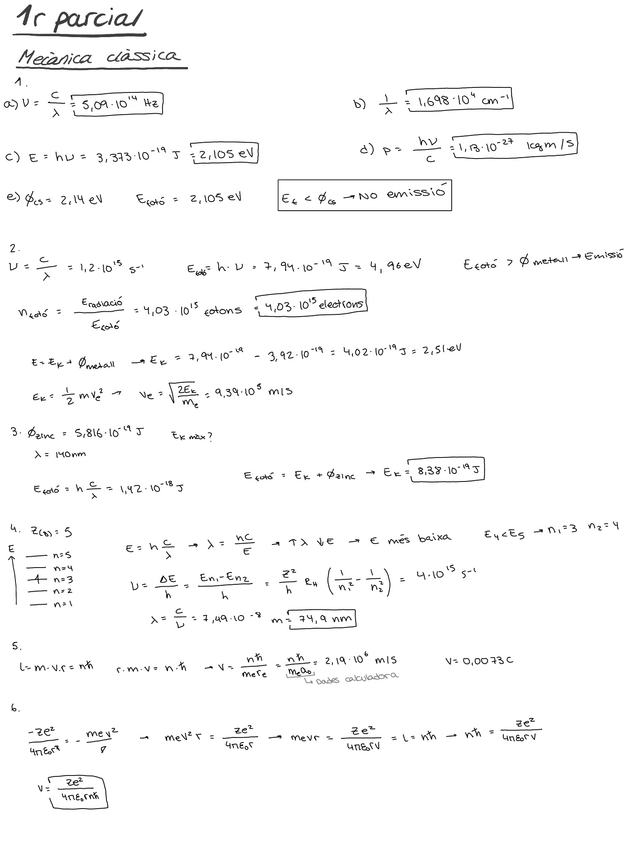 1r parcial
Mecànica clàssica
1.
a) ν = c/λ = 5,09·10¹⁴ Hz
b) 1/λ = 1,698·10⁴ cm⁻¹
c) E = hν = 3,373·10⁻¹⁹ J = 2,105 eV
d) p = hν/c = 1,13·10⁻²⁷ kg m/s
e) φcs = 2,14 eV Efotó = 2,105 eV Ef < φcs → No emissió
2.
ν = c/λ = 1,2·10¹⁵ s⁻¹ Efotó = h·ν = 7,94·10⁻¹⁹ J = 4,96 eV Efotó > φmetall → Emissió
nfotó = Eradiació/Efotó = 4,03·10¹⁵ fotons = 4,03·10¹⁵ electrons
E = Ek + φmetall → Ek = 7,94·10⁻¹⁹ - 3,92·10⁻¹⁹ = 4,02·10⁻¹⁹ J = 2,51 eV
Ek = 1/2 m ve² → ve = √(2Ek/me) = 9,39·10⁵ m/s
3. φzinc = 5,816·10⁻¹⁹ J Ek max?
λ = 140 nm
Efotó = h c/λ = 1,42·10⁻¹⁸ J
Efotó = Ek + φzinc → Ek = 8,38·10⁻¹⁹ J
4. Z(B) = 5
E
n=5
n=4
n=3
n=2
n=1
E = h c/λ → λ = hc/E → ↑λ ↓E → E més baixa E4<E5 → n1=3 n2=4
ν = ΔE/h = (En1-En2)/h = Z²/h RH (1/n1² - 1/n2²) = 4·10¹⁵ s⁻¹
λ = c/ν = 7,49·10⁻⁸ m = 74,9 nm
5.
l = m·v·r = nħ r·m·v = n·ħ → v = nħ/mere = nħ/mea0 = 2,19·10⁶ m/s v = 0,0073 c
↳ Dades calculadora
6.
-Ze²/4πε0r² = - mev²/r → mev²r = Ze²/4πε0r → mevr = Ze²/4πε0rv = L = nħ → nħ = Ze²/4πε0rv
v = Ze²/4πε0rnħ